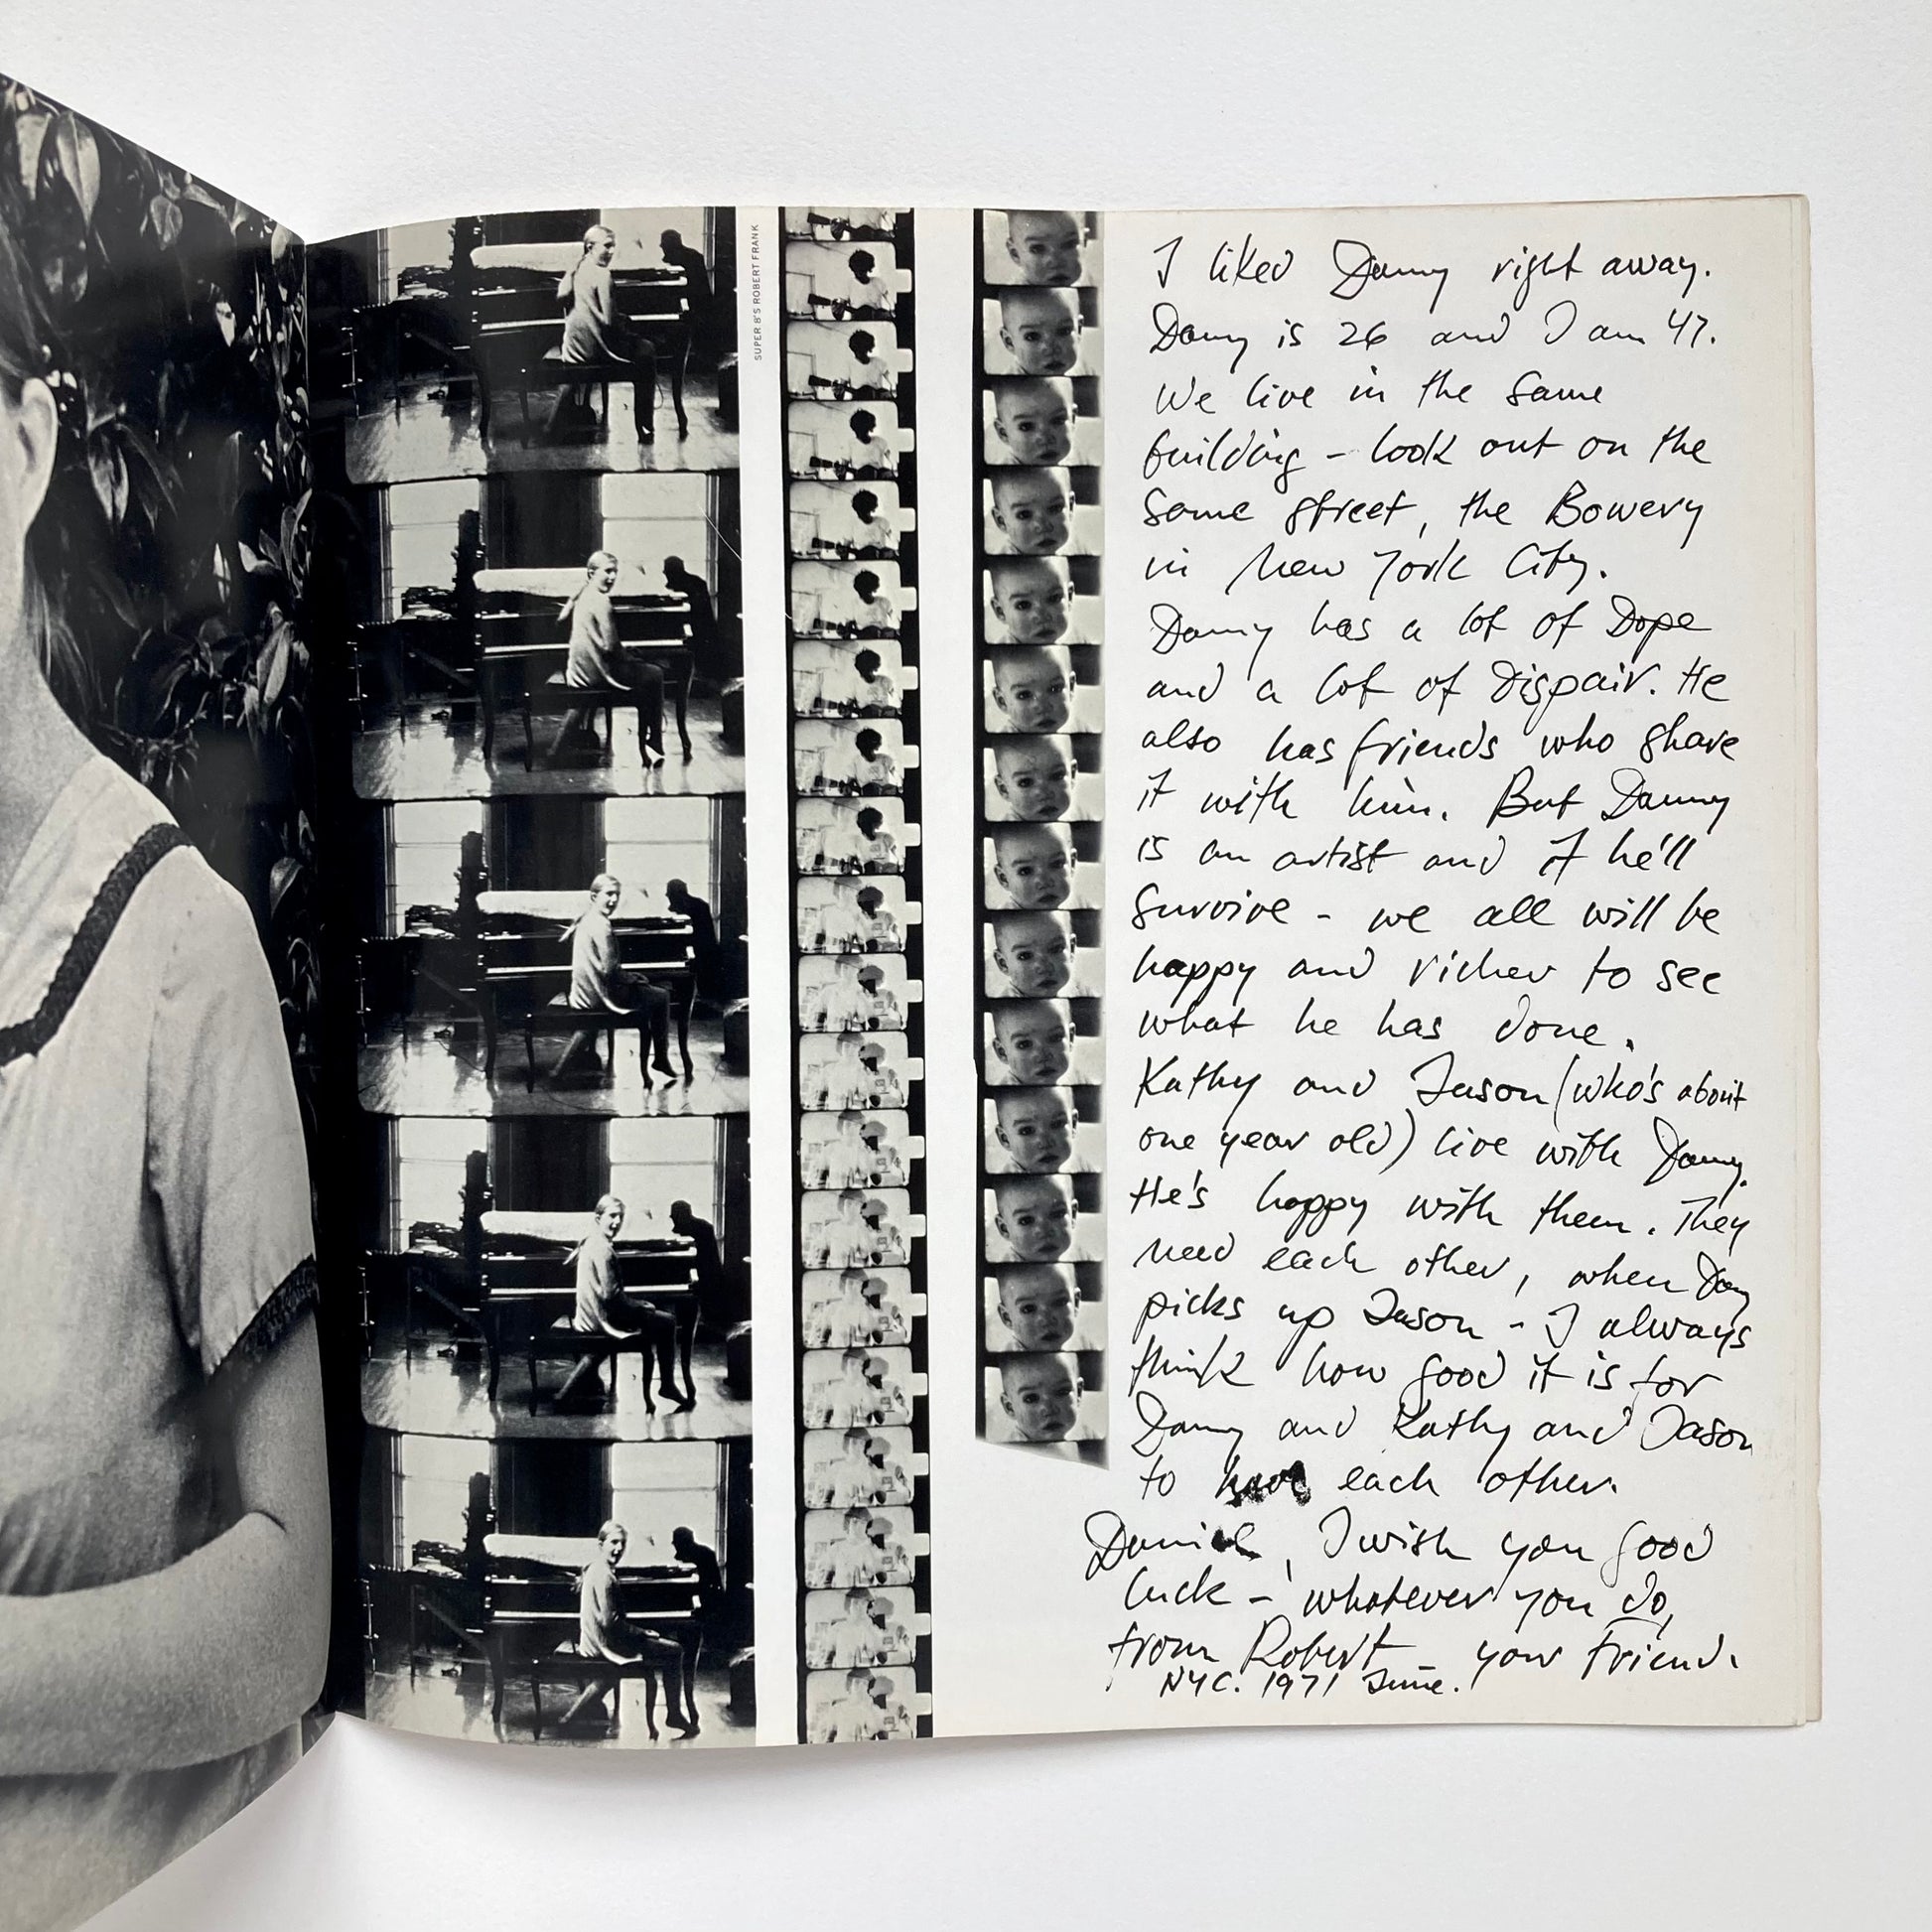 SUPER 8'S ROBERT FRANK
I liked Danny right away.
Danny is 26 and I am 47.
We live in the same
building - look out on the
same street, the Bowery
in New York City.
Danny has a lot of Dope
and a lot of Dispair. He
also has friends who share
it with him. But Danny
is an artist and if he'll
survive - we all will be
happy and richer to see
what he has done.
Kathy and Jason (who's about
one year old) live with Danny.
He's happy with them. They
need each other, when Dany
picks up Jason - I always
think how good it is for
Danny and Kathy and Jason
to have each other.
Daniel, I wish you good
luck - whatever you do,
from Robert your Friend.
NYC. 1971 June.